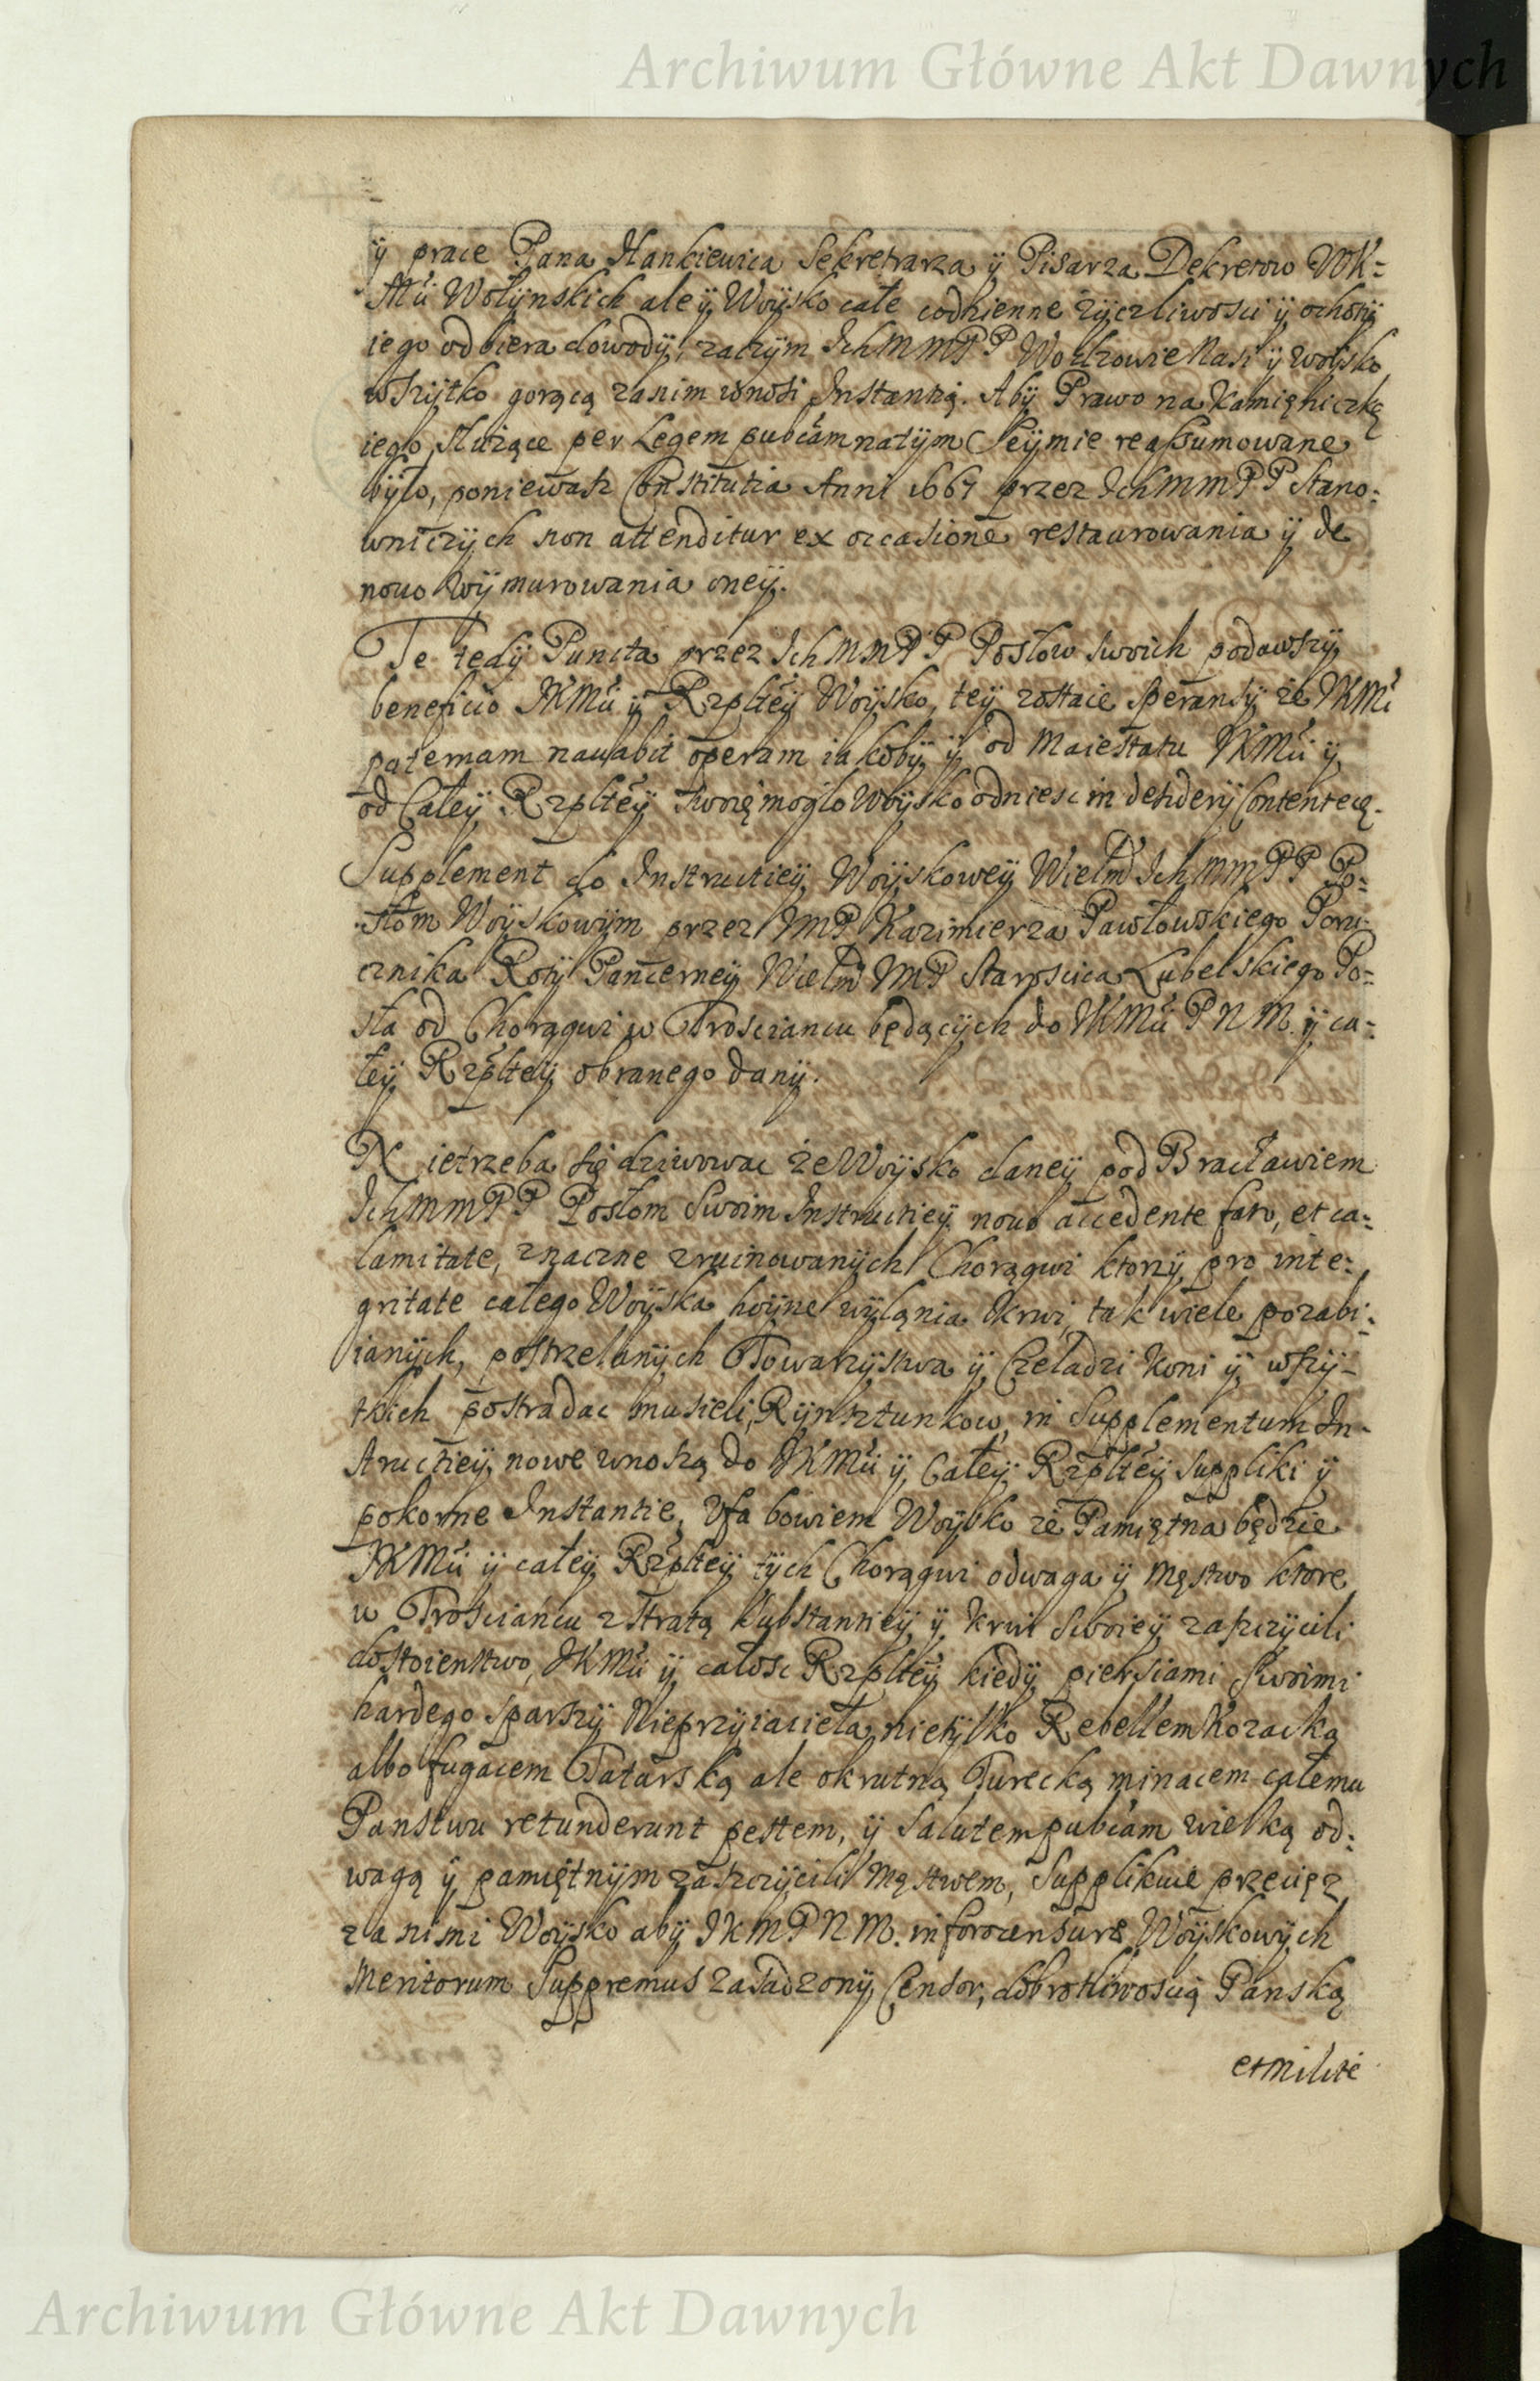 Archiwum Główne Akt Dawnych
ÿ prace Pana Hankiewica Sekretarza ÿ Pisarza Dekretow WK=
Mci Wołÿnskich ale ÿ Woÿsko całe codzienne zÿczliwosci ÿ ochotÿ
iego odbiera dowodÿ, zaczÿm IchMMPP Wodzowie Nasi ÿ Woÿsko
wszÿtko gorącą zanim wnosi Instantią. Abÿ Prawo na Kamięniczkę
iego służące per Legem publcam natÿm Seÿmie reassumowane
bÿło, poniewasz Constitutia Anni 1667 przez IchMMPP Stano=
wniczÿch non attenditur ex occasione restaurowania ÿ de
nouo wÿmurowania oneÿ.
Te tedÿ Puncta przez IchMMPP Posłow swoich podawszÿ
beneficio JKMci ÿ Rzplteÿ Woÿsko, teÿ zostaie speransÿ ze JKMc
paternam nauabit operam iakobÿ ÿ od Maiestatu JKMci ÿ
od Całeÿ Rzplteÿ swoię mogło Woÿsko odniesc in desiderÿ Contentecę.
Supplement do Instructieÿ Woÿskoweÿ Wielm IchMMPP Po=
słom Woÿskowÿm przez JMP Kazimierza Pawłowskiego Poru=
cznika Rotÿ Pancerneÿ Wielm JMP Starościca Lubelskiego Po=
sła od Chorągwi w Trosciancu będącÿch do JKMci PNM. ÿ ca=
łeÿ Rzplteÿ obranego danÿ.
Nietrzeba się dziwowac że Woÿsko daneÿ pod Bracławiem
IchMMPP Posłom Swoim Instructieÿ nouo accedente fato, et ca=
lamitate, znaczne zruinowanÿch Chorągwi ktorzÿ pro inte=
gritate całego Woÿska hoÿne wÿlania krwi, tak wiele pozabi=
ianÿch, postrzelanÿch Towarzÿstwa ÿ Czeladzi koni ÿ wszÿ=
tkich postradac musieli, Rÿnsztunkow, in Supplementum In=
structieÿ nowe wnoszą do JKMci ÿ Całeÿ Rzpltеÿ suppliki ÿ
pokorne Instantie, Ufa bowiem Woÿsko że Pamiętna będzie
JKMci ÿ całeÿ Rzpltеÿ tÿch Chorągwi odwaga ÿ męstwo ktore
w Trosciancu z stratą Substantieÿ ÿ krwi Swoieÿ zaszczÿcili
dostoienstwo, JKMci ÿ całosc Rzpltеÿ kiedÿ piersiami Swoimi
hardego sparszÿ Nieprzÿiaciela nietÿlko Rebellem Kozacką
albo fugacem Tatarską ale okrutną Turecką minacem całemu
Panstwu retunderunt pestem, ÿ Salutem publcam wielką od=
wagą ÿ pamiętnÿm zaszczÿcili Męstwem, Supplikuie przecięz
za nimi Woÿsko abÿ JKMPNM. in foro censuræ Woÿskowÿch
Meritorum Suppremus zasadzonÿ Censor, dobrotliwoscią Panską
et milite
Archiwum Główne Akt Dawnych